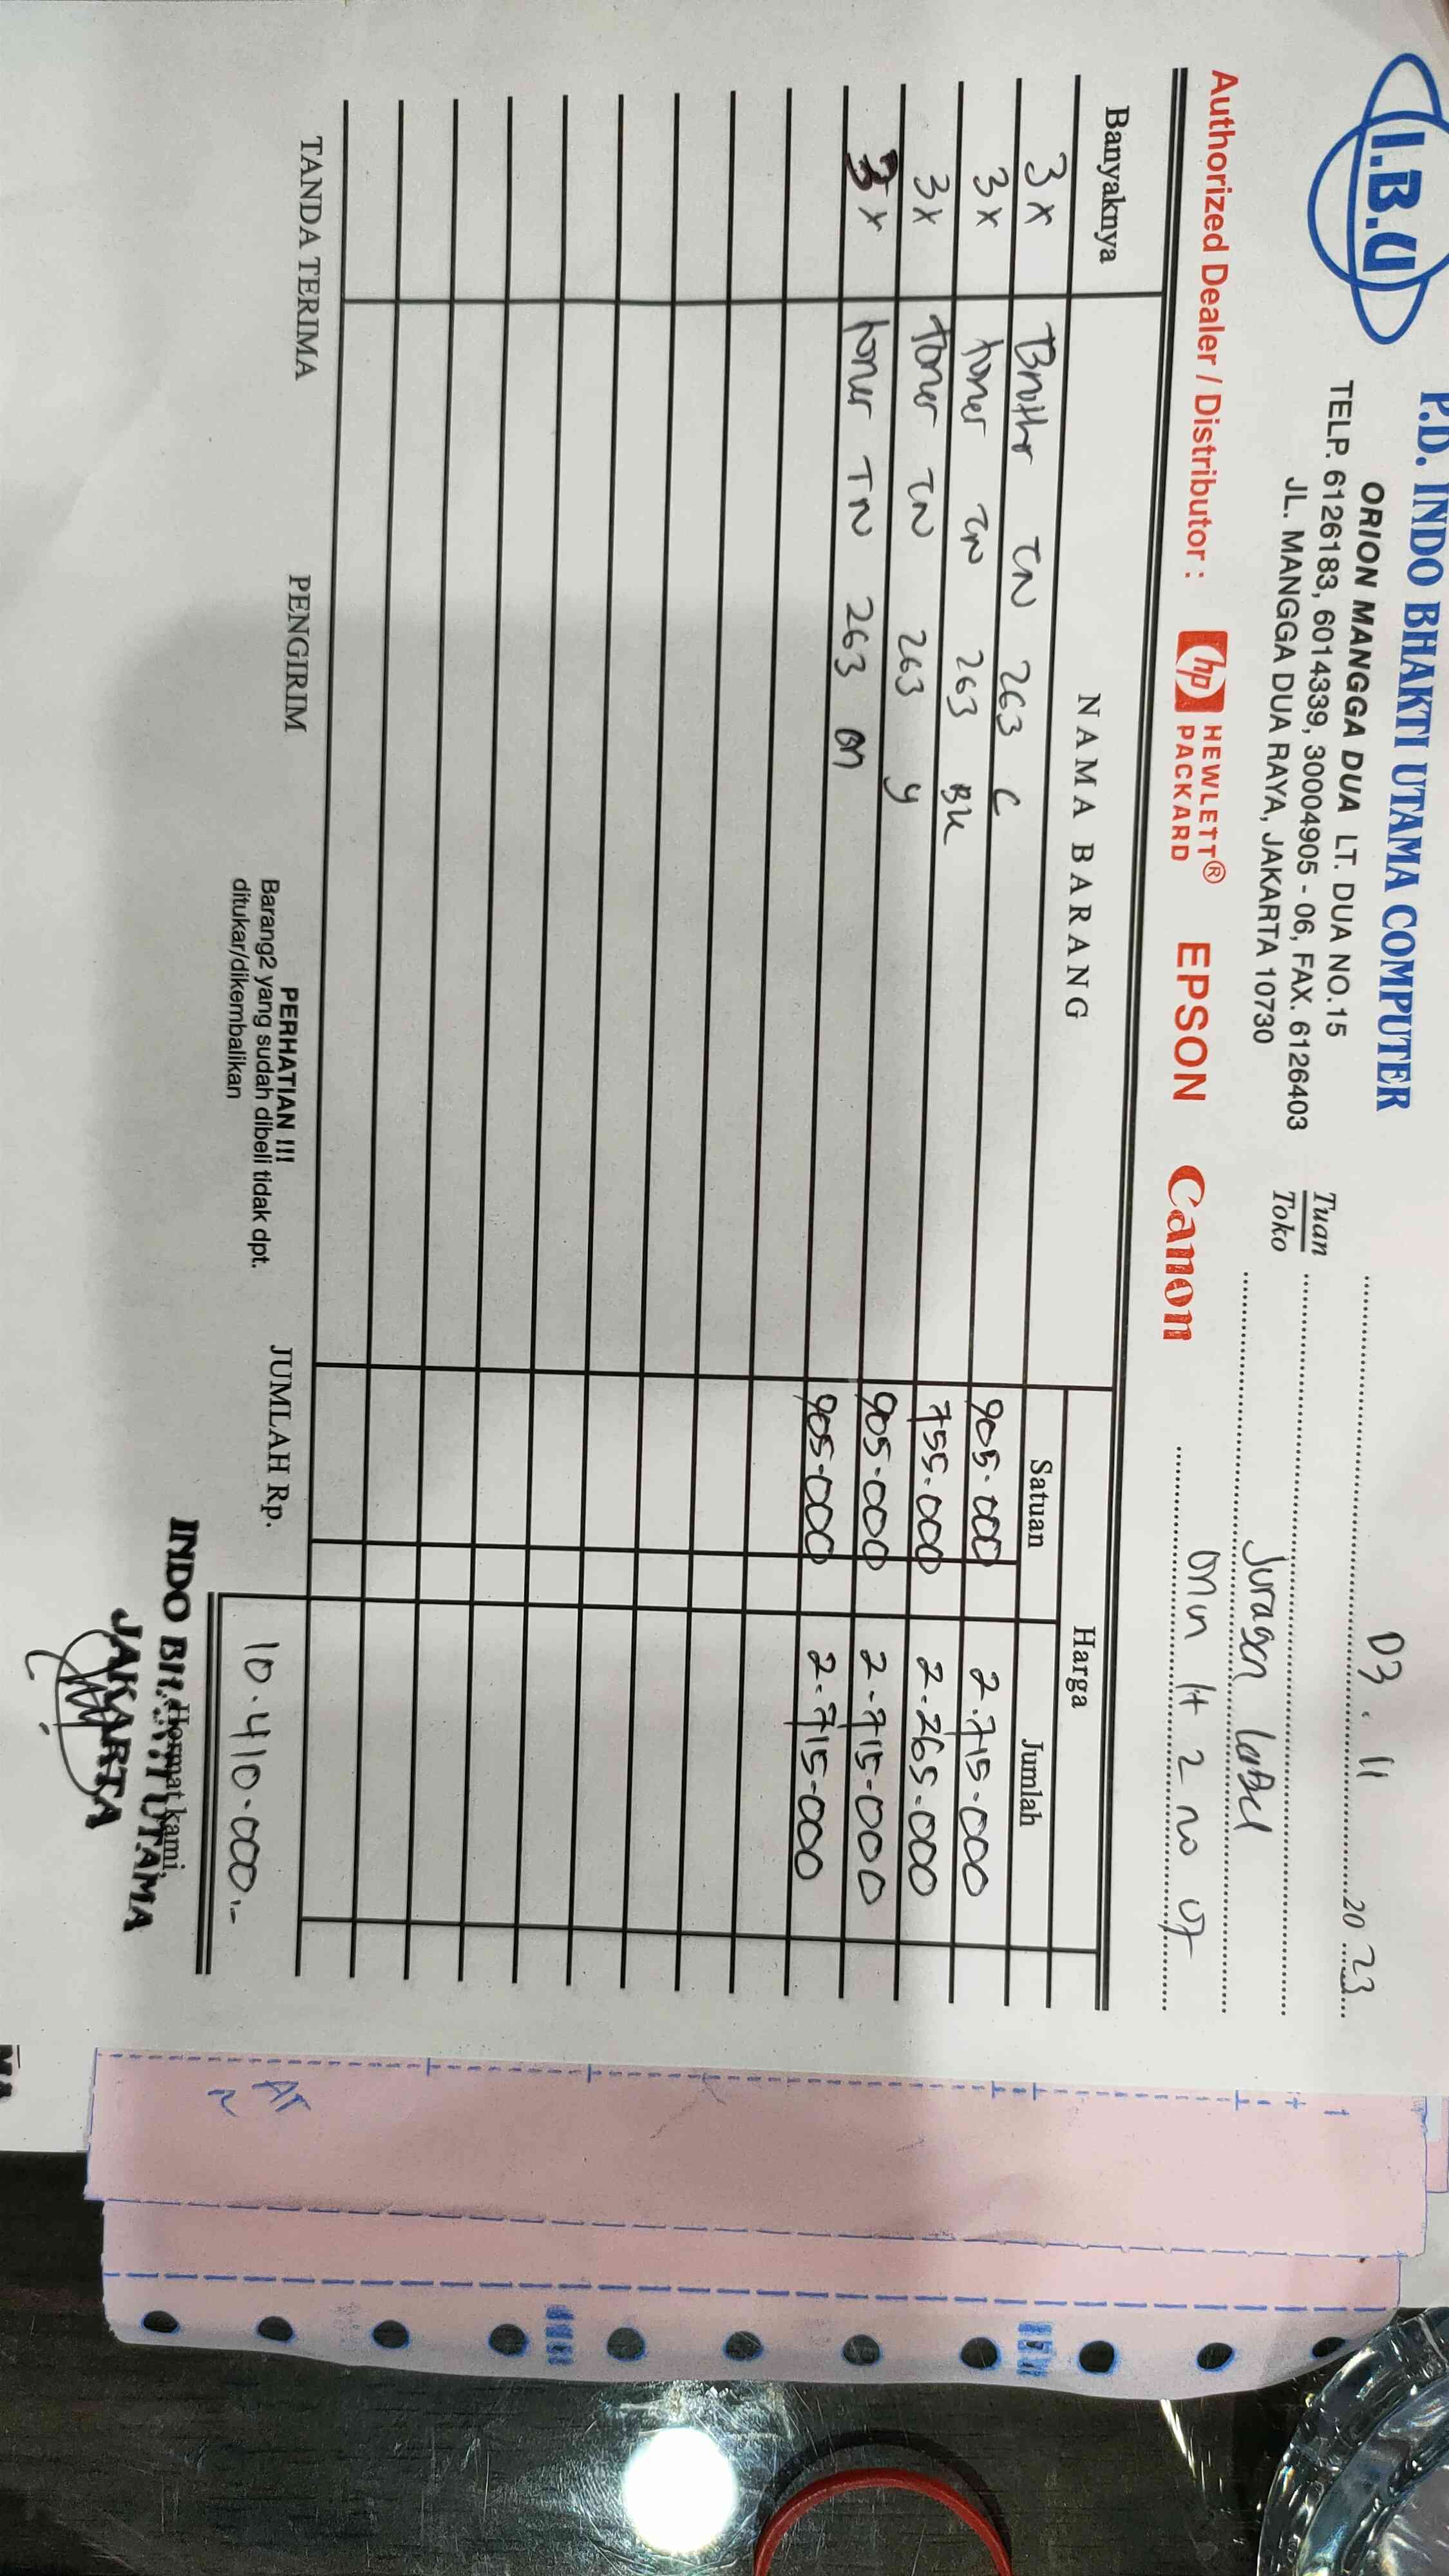 I.B.U
P.D. INDO BHAKTI UTAMA COMPUTER
ORION MANGGA DUA LT. DUA NO.15
TELP. 6126183, 6014339, 30004905 - 06, FAX. 6126403
JL. MANGGA DUA RAYA, JAKARTA 10730
03 . 11 20 23
Tuan
Toko
Juragan label
lt 2 no 07
Authorized Dealer / Distributor : hp HEWLETT® PACKARD EPSON Canon
Banyaknya NAMA BARANG Harga
Satuan Jumlah
3 x Brother TN 263 C 905.000 2.715.000
3 x toner TN 263 BK 755.000 2.265.000
3 x toner TN 263 y 905.000 2.715.000
3 x toner TN 263 m 905.000 2.715.000
TANDA TERIMA PENGIRIM JUMLAH Rp. 10.410.000.-
PERHATIAN !!!
Barang2 yang sudah dibeli tidak dpt.
ditukar/dikembalikan
Hormat kami,
INDO BHAKTI UTAMA
JAKARTA